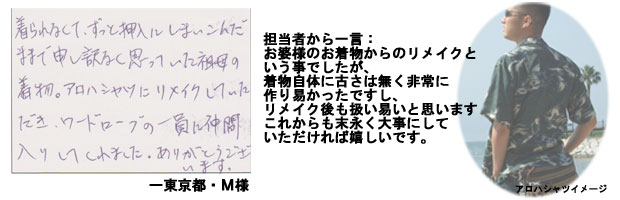 着られなくて、ずっと押入にしまいこんだ
ままで申し訳なく思っていた祖母の
着物。アロハシャツにリメイクしていた
だき、ワードローブの一員に仲間
入りしてくれました。ありがとうござ
います。
ー東京都・M様
担当者から一言：
お婆様のお着物からのリメイクと
いう事でしたが、
着物自体に古さは無く非常に
作り易かったですし、
リメイク後も扱い易いと思います
これからも末永く大事にして
いただければ嬉しいです。
アロハシャツイメージ